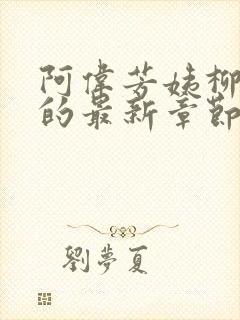 阿偉芳姨柳
的最新章節
劉夢夏